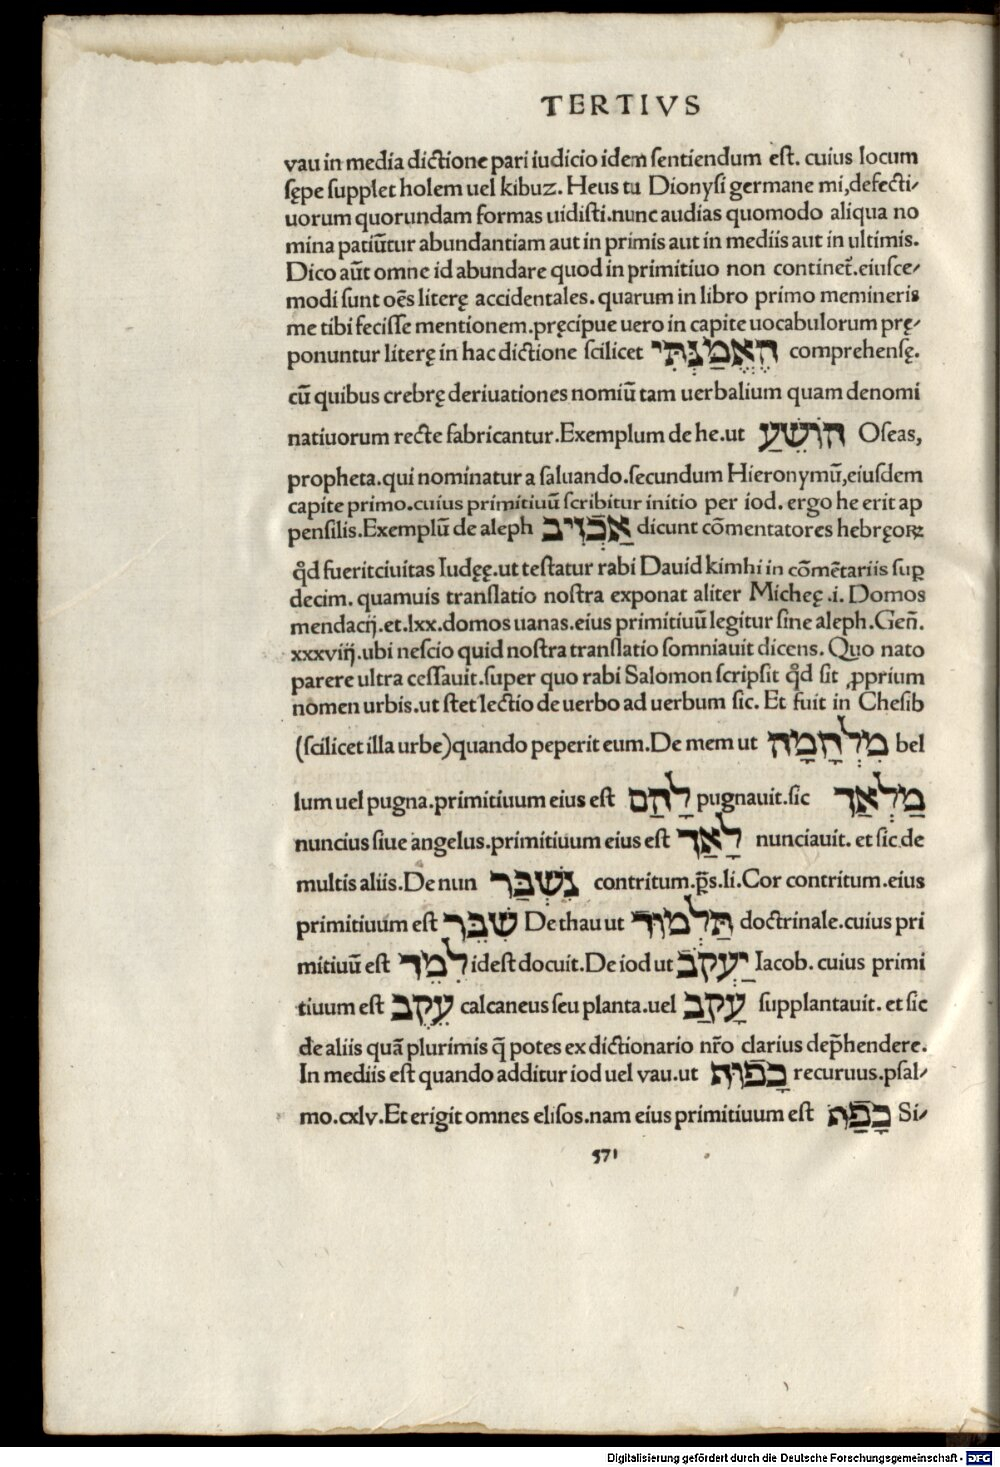 TERTIVS
vau in media dictione pari iudicio idem ſentiendum eſt. cuius locum
ſępe ſupplet holem uel kibuz. Heus tu Dionyſi germane mi,defecti⸗
uorum quorundam formas uidiſti.nunc audias quomodo aliqua no
mina patiūtur abundantiam aut in primis aut in mediis aut in ultimis.
Dico aūt omne id abundare quod in primitiuo non continet̃.eiuſce⸗
modi ſunt oēs literę accidentales. quarum in libro primo memineris
me tibi feciſſe mentionem.pręcipue uero in capite uocabulorum prę⸗
ponuntur literę in hac dictione ſcilicet הֶאֱמַנְתִּי comprehenſę.
cū quibus crebrę deriuationes nomiū tam uerbalium quam denomi
natiuorum recte fabricantur.Exemplum de he.ut הוֹשֵׁעַ Oſeas,
propheta.qui nominatur a ſaluando.ſecundum Hieronymū,eiuſdem
capite primo.cuius primitiuū ſcribitur initio per iod. ergo he erit ap
penſilis.Exemplū de aleph אַכְזִיב dicunt cōmentatores hebręoꝝ
qđ fueritciuitas Iudęę.ut teſtatur rabi Dauid kimhi in cōmētariis ſuꝑ
decim. quamuis tranſlatio noſtra exponat aliter Micheę .i. Domos
mendacij.et.lxx.domos uanas.eius primitiuū legitur ſine aleph.Geñ.
xxxviij.ubi neſcio quid noſtra tranſlatio ſomniauit dicens. Quo nato
parere ultra ceſſauit.ſuper quo rabi Salomon ſcripſit qđ ſit ꝓprium
nomen urbis.ut ſtet lectio de uerbo ad uerbum ſic. Et fuit in Cheſib
(ſcilicet illa urbe)quando peperit eum.De mem ut מִלְחָמָה bel
lum uel pugna.primitiuum eius eſt לָחַם pugnauit.ſic מַלְאַךְ
nuncius ſiue angelus.primitiuum eius eſt לָאַךְ nunciauit. et ſic de
multis aliis.De nun נִשְׁבַּר contritum.p̄s.li.Cor contritum.eius
primitiuum eſt שִׁבֵּר De thau ut תַּלְמוּד doctrinale.cuius pri
mitiuū eſt לִמֵד ideſt docuit.De iod ut יַעְקֹב Iacob. cuius primi
tiuum eſt עֵקֶב calcaneus ſeu planta.uel עָקַב ſupplantauit. et ſic
de aliis quā plurimis q̄ potes ex dictionario nr̄o clarius dep̄hendere.
In mediis eſt quando additur iod uel vau.ut כָּפוּף recuruus.pſal⸗
mo.cxlv.Et erigit omnes eliſos.nam eius primitiuum eſt כָּפַף Si⸗
571
Digitalisierung gefördert durch die Deutsche Forschungsgemeinschaft - DFG